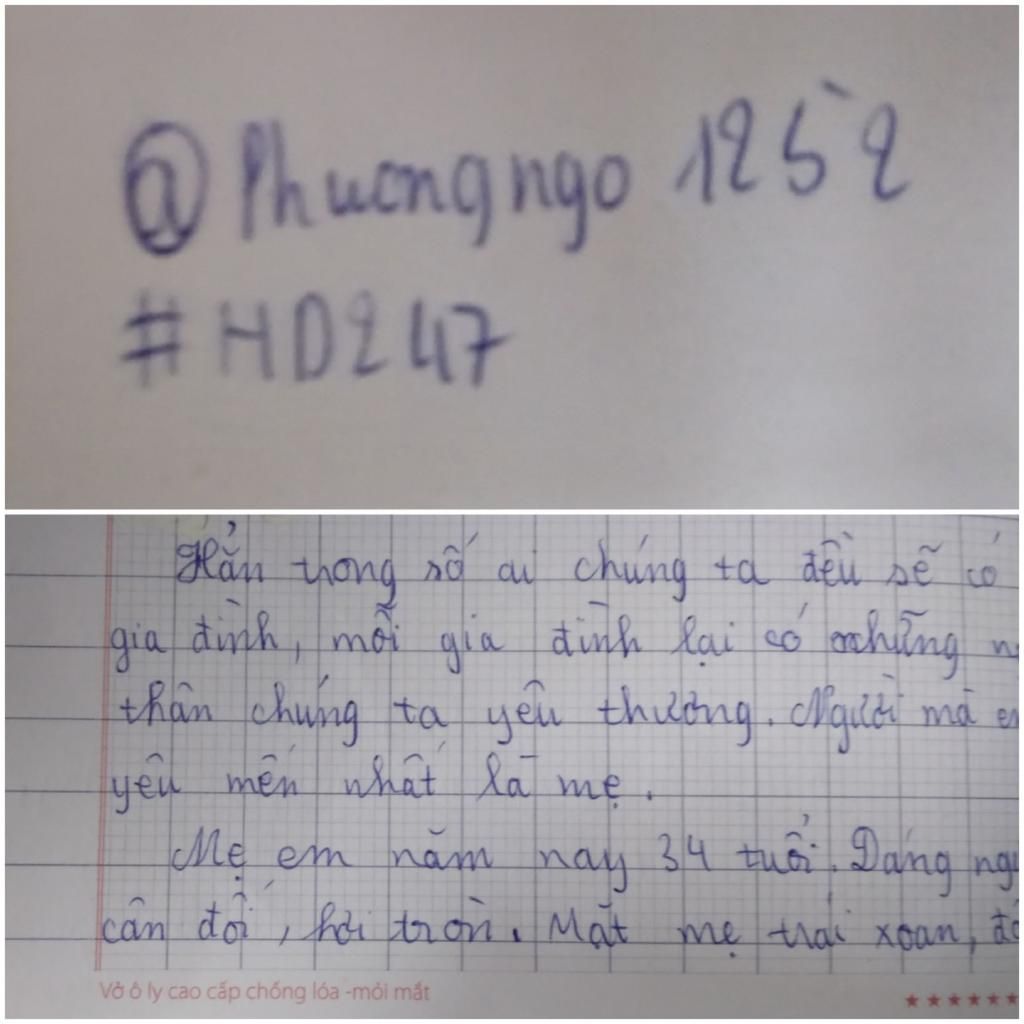 @Phuongngo 1252
#HD247
Hẳn trong số ai chúng ta đều sẽ có
gia đình, mỗi gia đình lại có những
thân chúng ta yêu thương. Người mà
yêu mến nhất là mẹ.
Mẹ em năm nay 34 tuổi. Dáng
cân đối, hơi tròn. Mặt mẹ trái xoan,
Vở ô ly cao cấp chống lóa -mỏi mắt